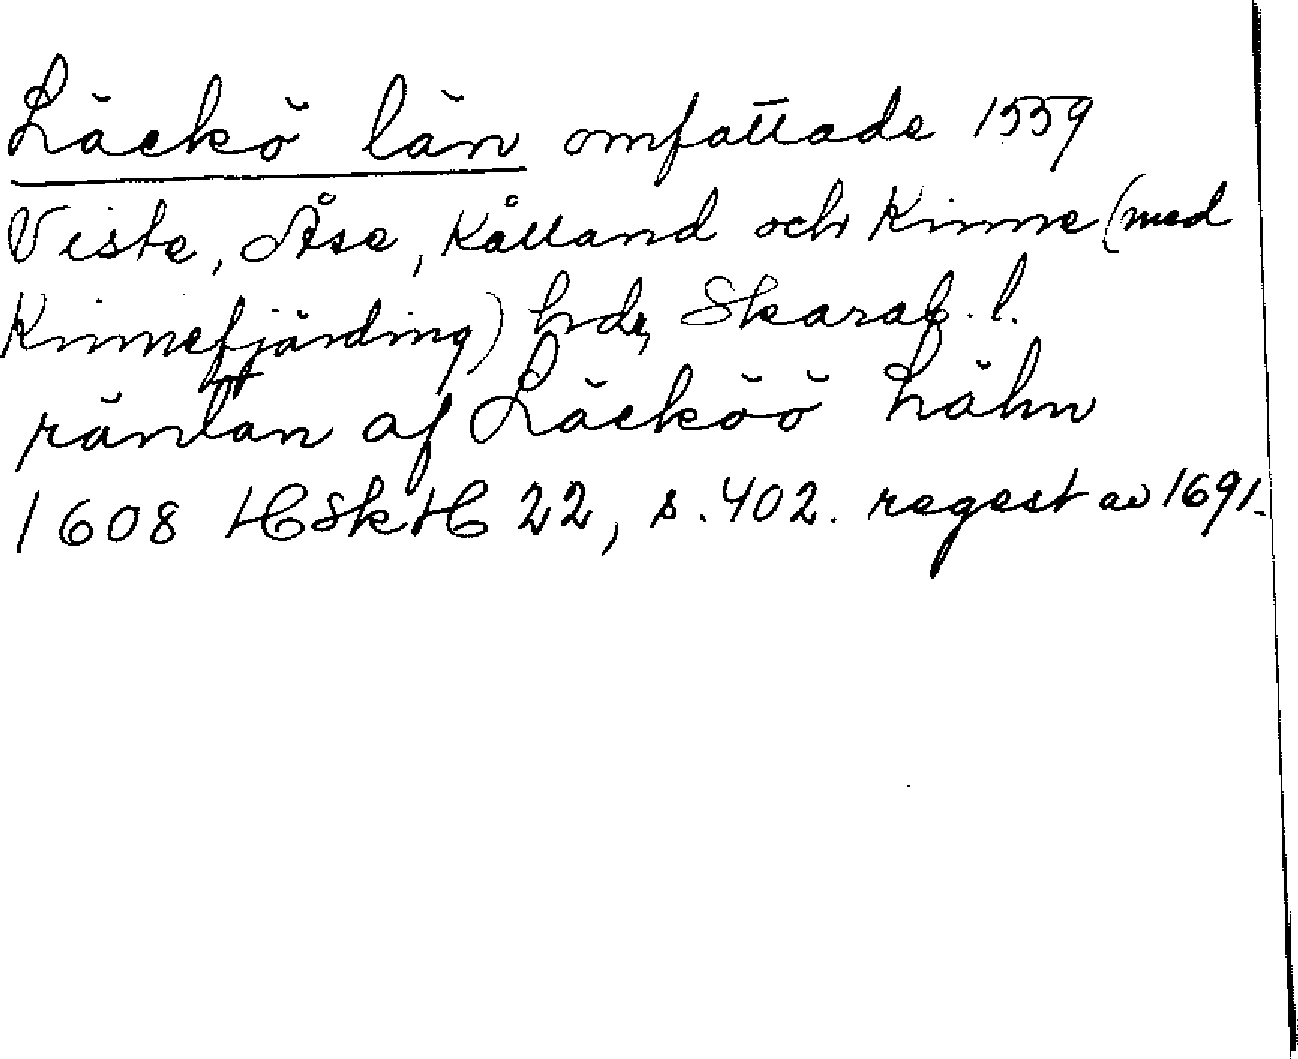 Läckö län omfattade 1559
Viste, Åse, Kålland och Kinne (med
Kinnefjärding) hdr, Skarab. l.
räntan af Läcköö Lähn
1608 HSkH 22, s. 402. regest av 1691.